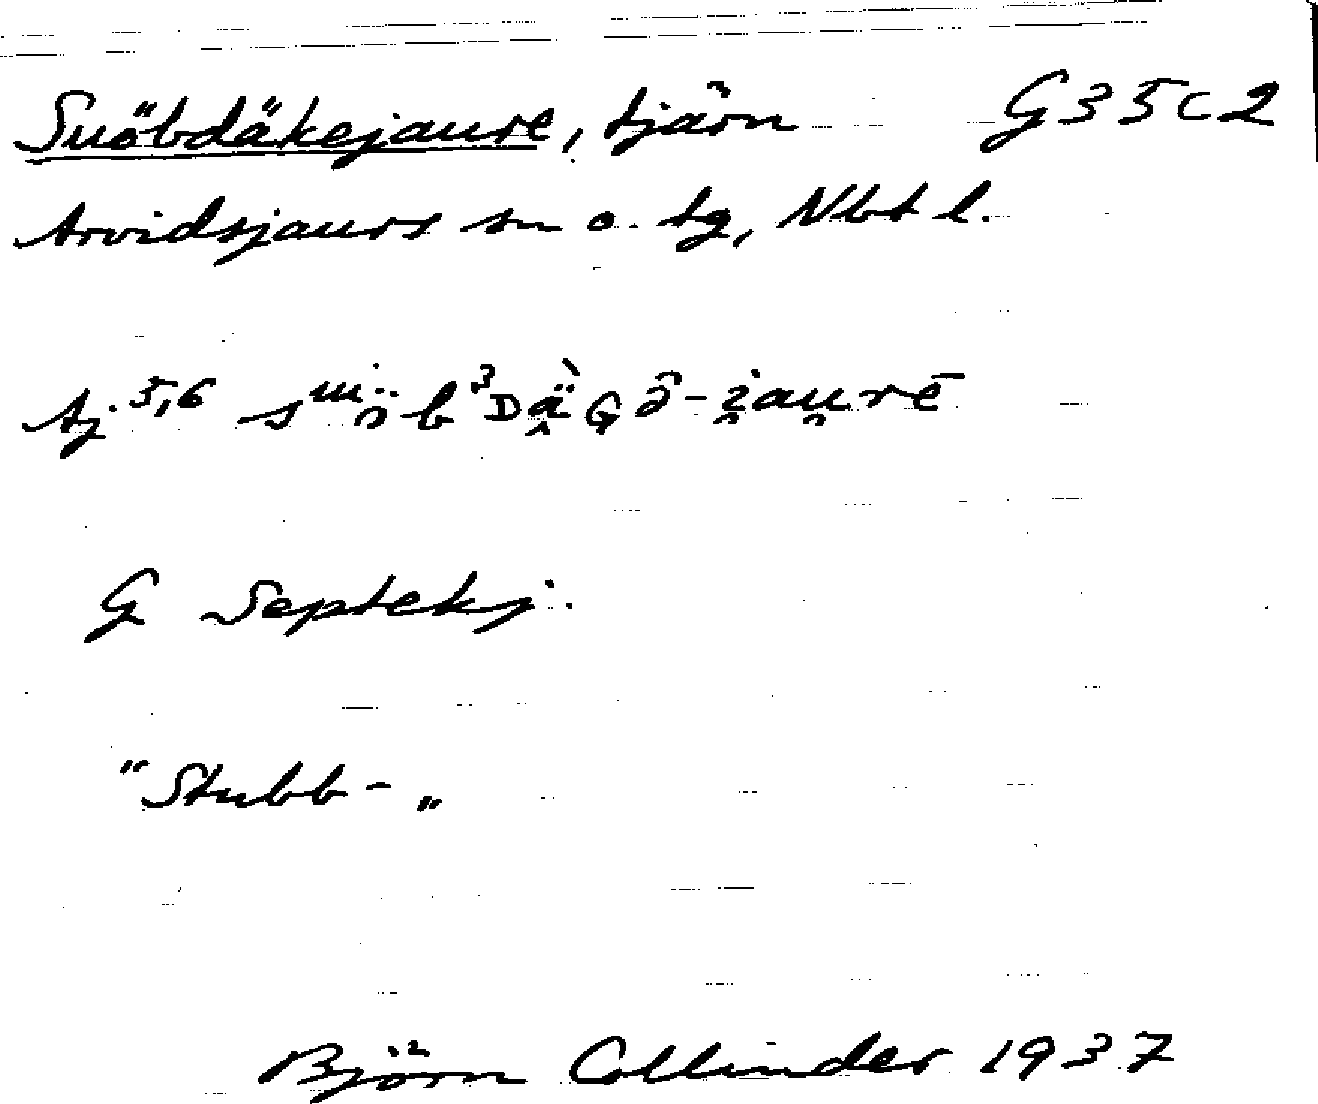 Suöbdäkejaure, tjärn G35c2
Arvidsjaurs sn o. tg, Nbt l.
Aj. 5,6
G Septekj.
"Stubb-„
Björn Collinder 1937